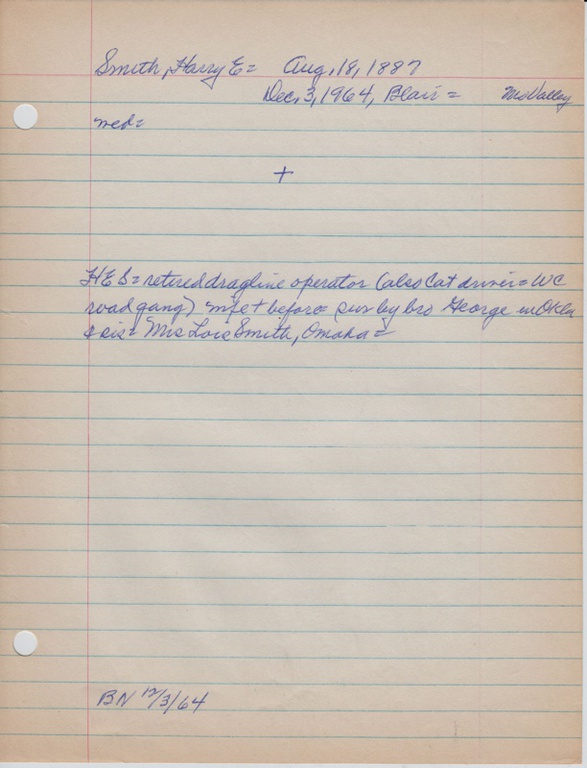 Smith, Harry E= Aug, 18, 1887
Dec, 3, 1964, Blair= Mo Valley
wed=
+
HES= retired dragline operator (also Cat driver= WC
road gang) wife + before= surv by bro George in Okla
& sis= Mrs Lois Smith, Omaha=
BN 12/3/64